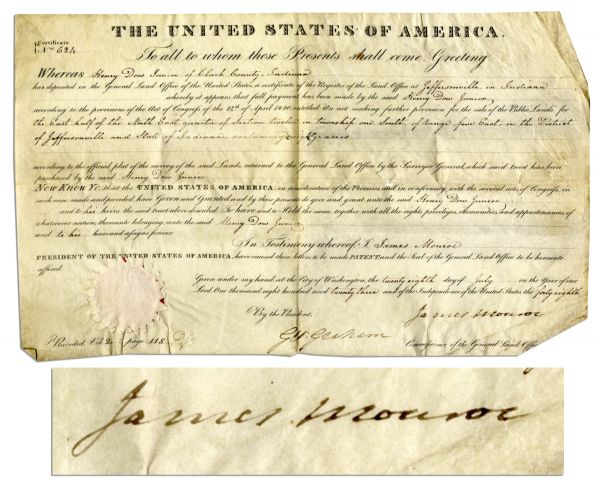 THE UNITED STATES OF AMERICA.
Certificate
No 624
To all to whom these Presents shall come, Greeting
Whereas Henry Dow Junior of Clark County, Indiana
has deposited in the General Land Office of the United States, a certificate of the Register of the Land Office at Jeffersonville in Indiana
whereby it appears that full payment has been made by the said Henry Dow Junior
according to the provisions of the Act of Congress of the 24th of April 1820, entitled An act making further provision for the sale of the Public Lands, for
the East half of the North East quarter of Section twelve in township one South, of range five East, in the District
of Jeffersonville and State of Indiana containing Acres
according to the official plat of the survey of the said Lands, returned to the General Land Office by the Surveyor General, which said tract has been
purchased by the said Henry Dow Junior
NOW KNOW YE, that the UNITED STATES OF AMERICA, in consideration of the Premises, and in conformity with the several acts of Congress, in
such case made and provided, have Given and Granted and by these presents do give and grant unto the said Henry Dow Junior
and to his heirs the said tract above described. To have and to Hold the same, together with all the rights, privileges, immunities, and appurtenances of
whatsoever nature, thereunto belonging, unto the said Henry Dow Junior
and to his heirs and assigns forever.
In Testimony whereof, I James Monroe
PRESIDENT OF THE UNITED STATES OF AMERICA, have caused these letters to be made PATENT, and the Seal of the General Land Office to be hereunto
affixed.
Given under my hand, at the City of Washington, the twenty eighth day of July in the Year of our
Lord One thousand, eight hundred and twenty three and of the Independence of the United States the forty eighth
By the President.
James Monroe
Recorded Vol 2 page 118
Geo. Graham
Commissioner of the General Land Office
James Monroe